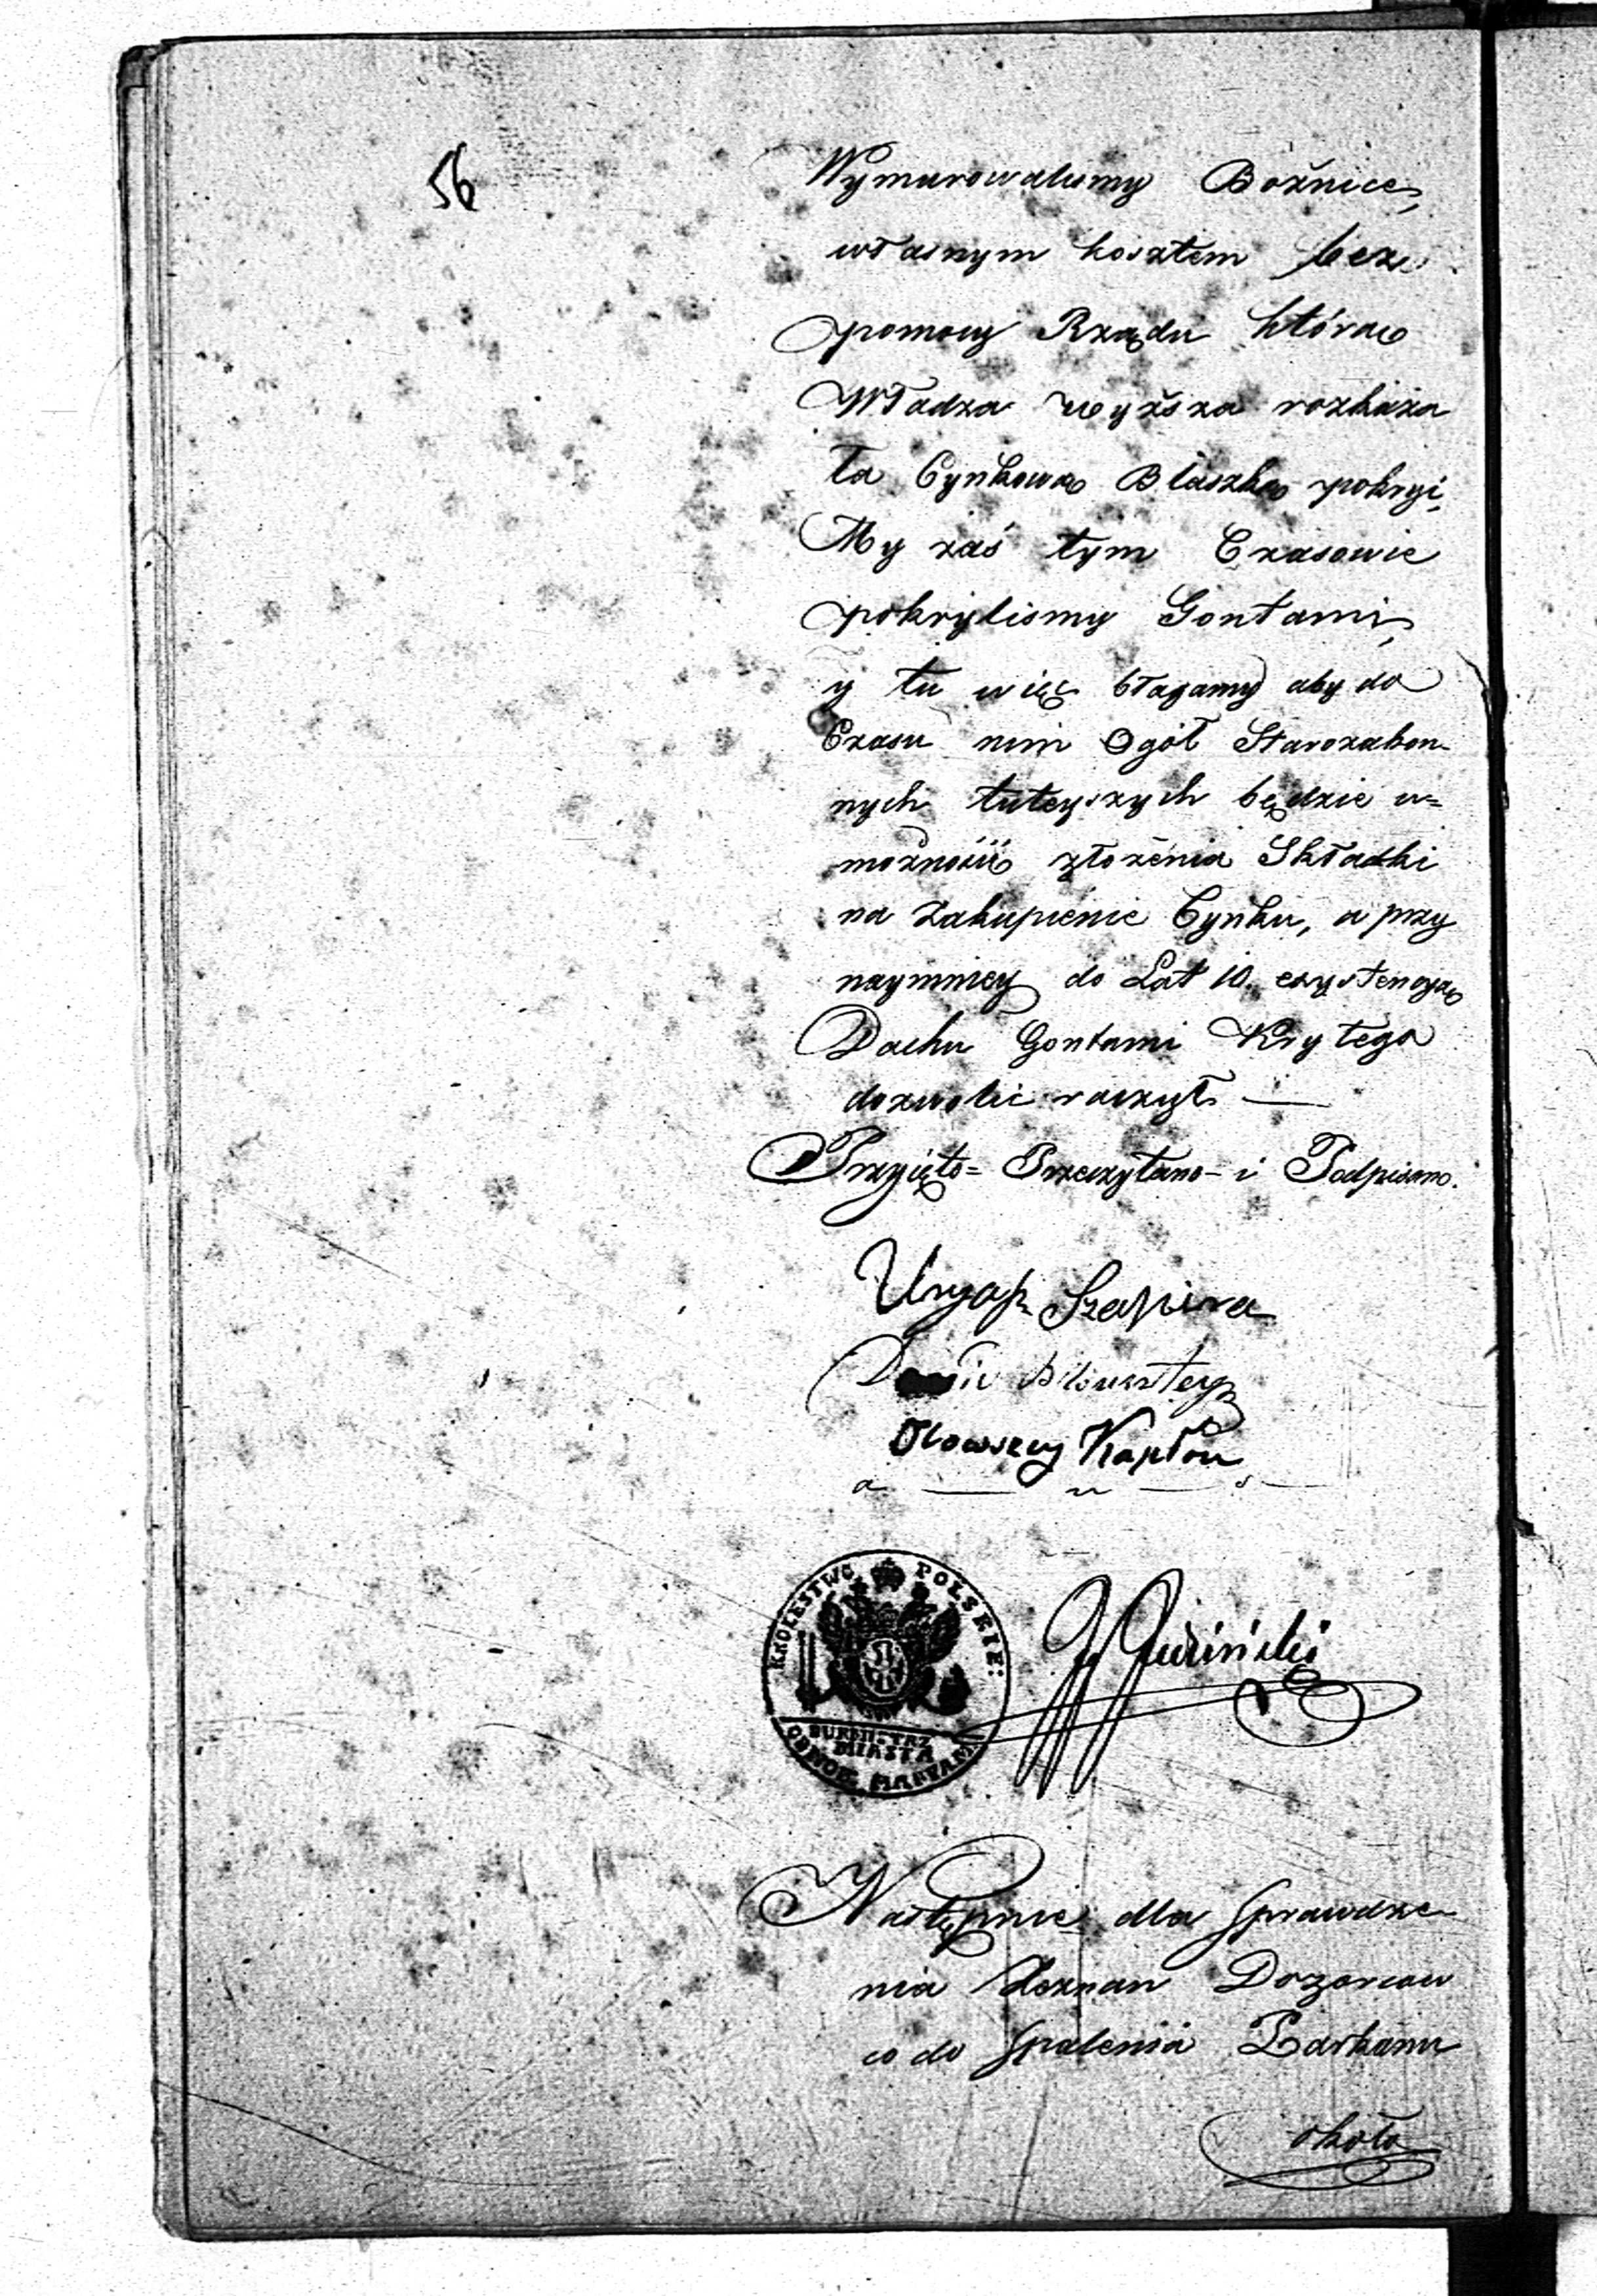 56
Wymurowalismy Bożnicę,
własnym kosztem bez
pomocy Rządu którą
Władza wyższa rozkaza
ła Cynkową Blaszką pokryć,
My zaś tym Czasowie
pokrylismy Gontami,
y tu więc błagamy aby do
Czasu nim Ogół Starozakon-
nych tuteyszych będzie w=
możności złożenia Składki
na Zakupienie Cynku, a przy
naymniey do Lat 10. exystencyą
Dachu Gontami Krytego
dozwolić raczył. —
Przyięto= Przeczytano- i Podpisano.
Szapira
Kapłon
KROLESTWO POLSKIE:
BURMISTRZ
MIASTA
Następnie dla Sprawdze-
nia Zeznan Dozorcow
co do Spalenia Parkanu
około